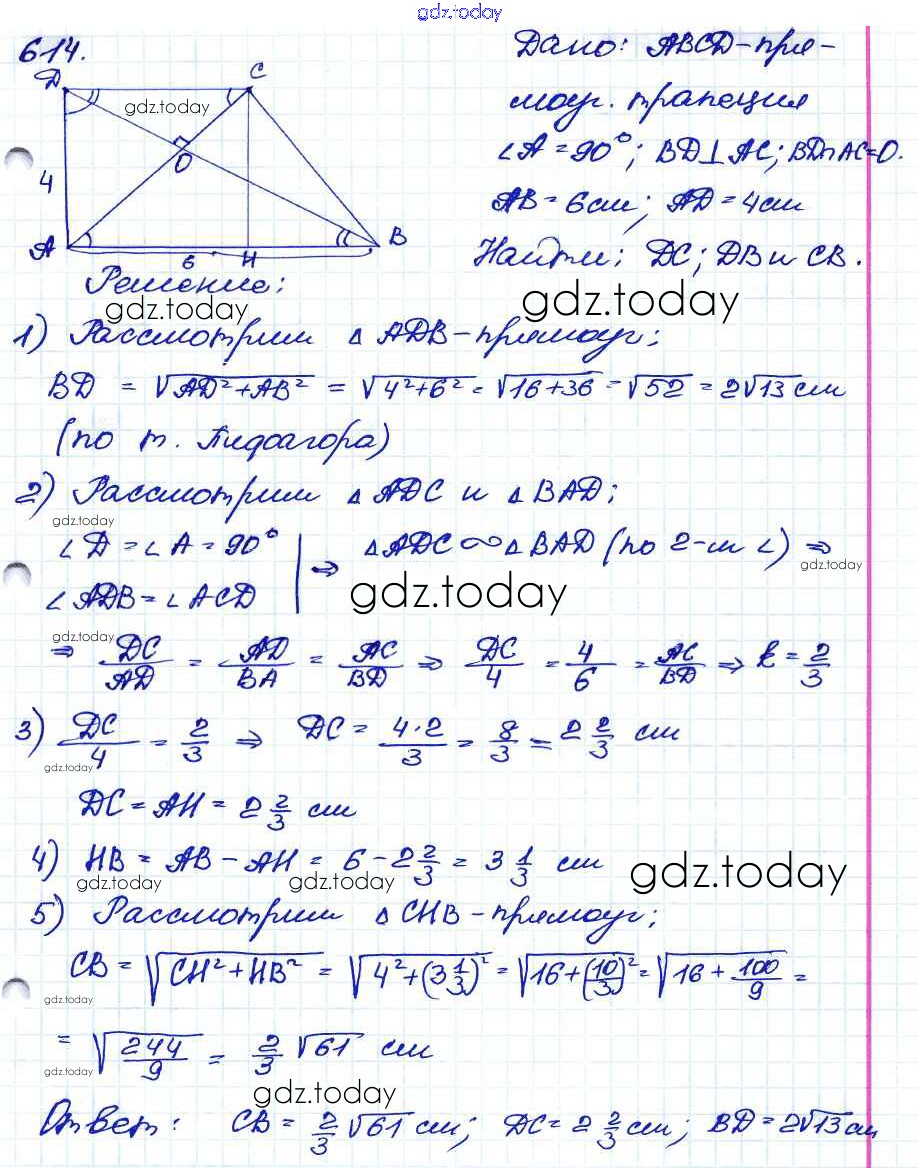 gdz.today
614.
Дано: ABCD-пря-
моуг. трапеция
∠A = 90°; BD⊥AC; BD∩AC=O.
AB = 6см; AD = 4см
Найти: DC; DB и CB.
D C
gdz.today
4 O
A 6 H B
Решение:
gdz.today gdz.today
1) Рассмотрим △ADB-прямоуг;
BD = √AD²+AB² = √4²+6² = √16+36 = √52 = 2√13 см
(по т. Пифагора)
2) Рассмотрим △ADC и △BAD;
gdz.today
∠D = ∠A = 90° | ⇒ △ADC ∞ △BAD (по 2-м ∠) ⇒
gdz.today
∠ADB = ∠ACD
gdz.today
gdz.today
⇒ DC/AD = AD/BA = AC/BD ⇒ DC/4 = 4/6 = AC/BD ⇒ k = 2/3
3) DC/4 = 2/3 ⇒ DC = 4·2/3 = 8/3 = 2 2/3 см
gdz.today
DC = AH = 2 2/3 см
4) HB = AB - AH = 6 - 2 2/3 = 3 1/3 см
gdz.today gdz.today gdz.today
5) Рассмотрим △CHB-прямоуг;
CB = √CH²+HB² = √4²+(3 1/3)² = √16+(10/3)² = √16+100/9 =
gdz.today
= √244/9 = 2/3 √61 см
gdz.today
gdz.today
Ответ: CB = 2/3 √61 см; DC = 2 2/3 см; BD = 2√13 см